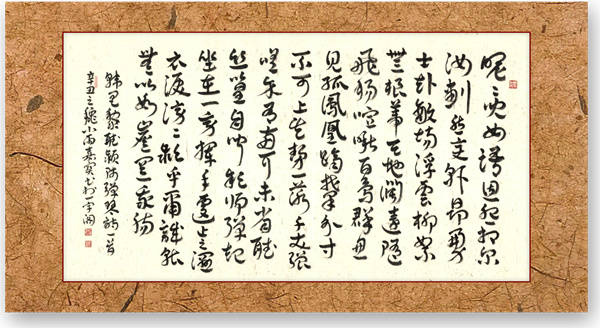 昵々兒女語恩怨相爾
汝劃然變軒昂勇
士赴敵場浮雲柳絮
無根蒂天地闊遠隨
飛揚喧啾百鳥群忽
見孤鳳凰躋攀分寸
不可上失勢一落千丈強
嗟余有兩耳未省聽
絲篁自聞穎師彈起
坐在一旁推手遽止之濕
衣淚滂々穎乎爾誠能
無以冰炭置我腸
韓昌黎聽穎師彈琴詩一首
辛丑之秋小雨